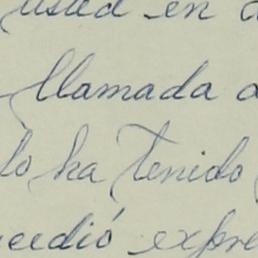 usted en
llamada a
lo ha tenido
cedió expre